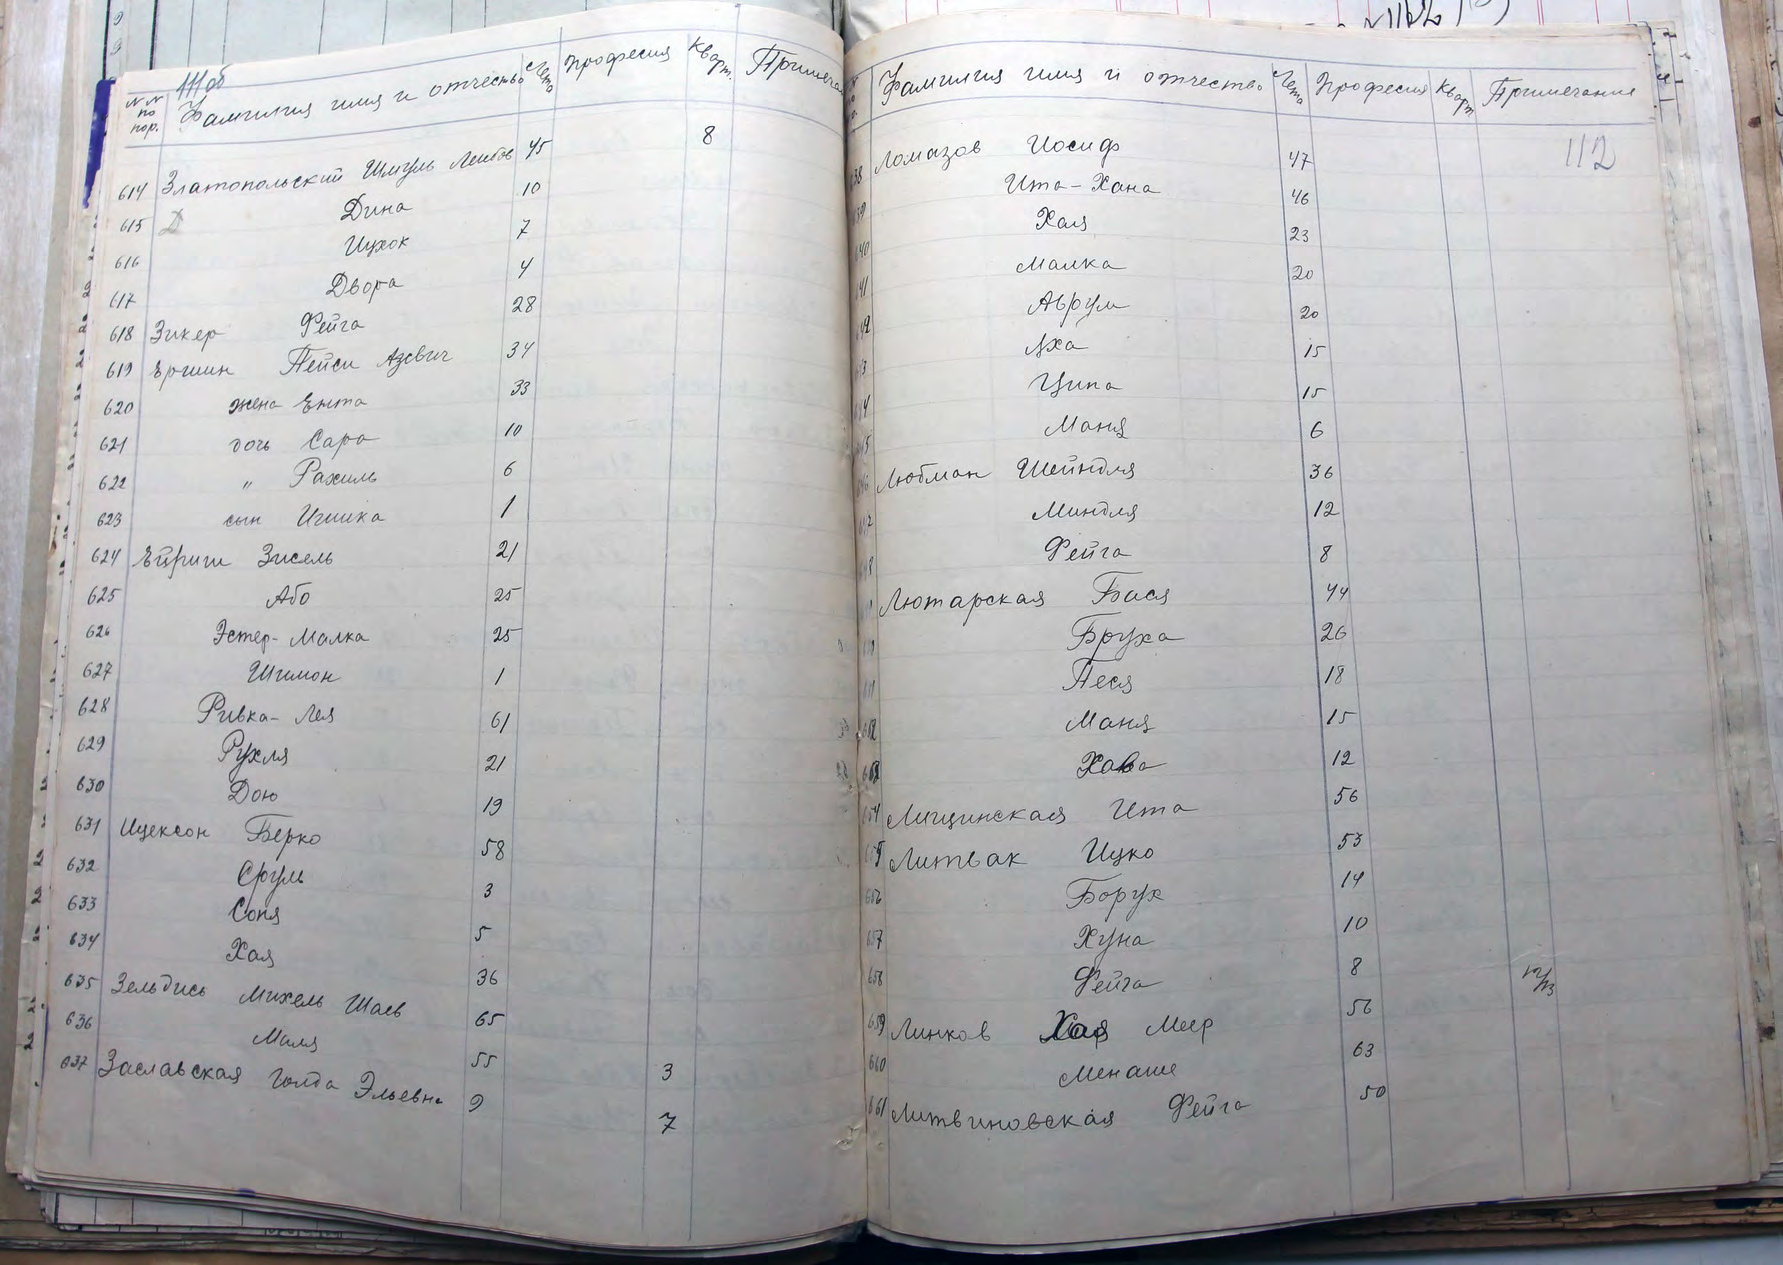 111об
№№ по пор. Фамилия имя и отчество Лета Професия Кварт. Примеча
614 Златопольский Шмуль Лейбов 45 8
615 Дина 10
616 Ицхок 7
617 Двора 4
618 Зикер Фейга 28
619 Ершин Пейси Азевич 34
620 жена Ента 33
621 дочь Сара 10
622 " Рахиль 6
623 сын Игишка 1
624 Ейриш Зисель 21
625 Або 25
626 Эстер-Малка 25
627 Шимон 1
628 Ривка-Лея 61
629 Рухля 21
630 Дою 19
631 Ицексон Берко 58
632 Сруль 3
633 Соня 5
634 Хая 36
635 Зельдись Михель Шаев 65
636 Миля 55 3
637 Заславская Голда Эльевна 9 7
Фамилия имя и отчество Лета Професия Кварт. Примечания
112
638 Ломазов Иосиф 47
39 Ита-Хана 46
40 Хая 23
41 Малка 20
42 Аврум 20
43 Аха 15
44 Ципа 15
45 Маня 6
46 Любман Шейндля 36
47 Миндля 12
48 Фейга 8
Лютарская Бася 44
Бруха 26
Песя 18
652 Маня 15
653 Хава 12
654 Лищинская Ита 56
655 Литвак Ицко 53
656 Борух 14
657 Хуна 10
658 Фейга 8
659 Линков Меер 56
660 Менаше 63
661 Литвиновская Фейга 50